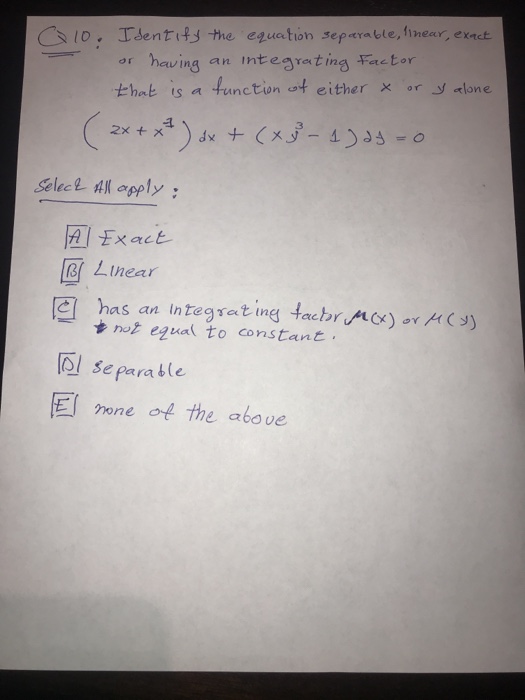 Q 10: Identify the equation separable, linear, exact
or having an integrating Factor
that is a function of either x or y alone
(2x + x⁷) dx + (xy³ - 1) dy = 0
Select All apply :
A Exact
B Linear
C has an Integrating factor M(x) or M(y)
not equal to constant.
D separable
E none of the above